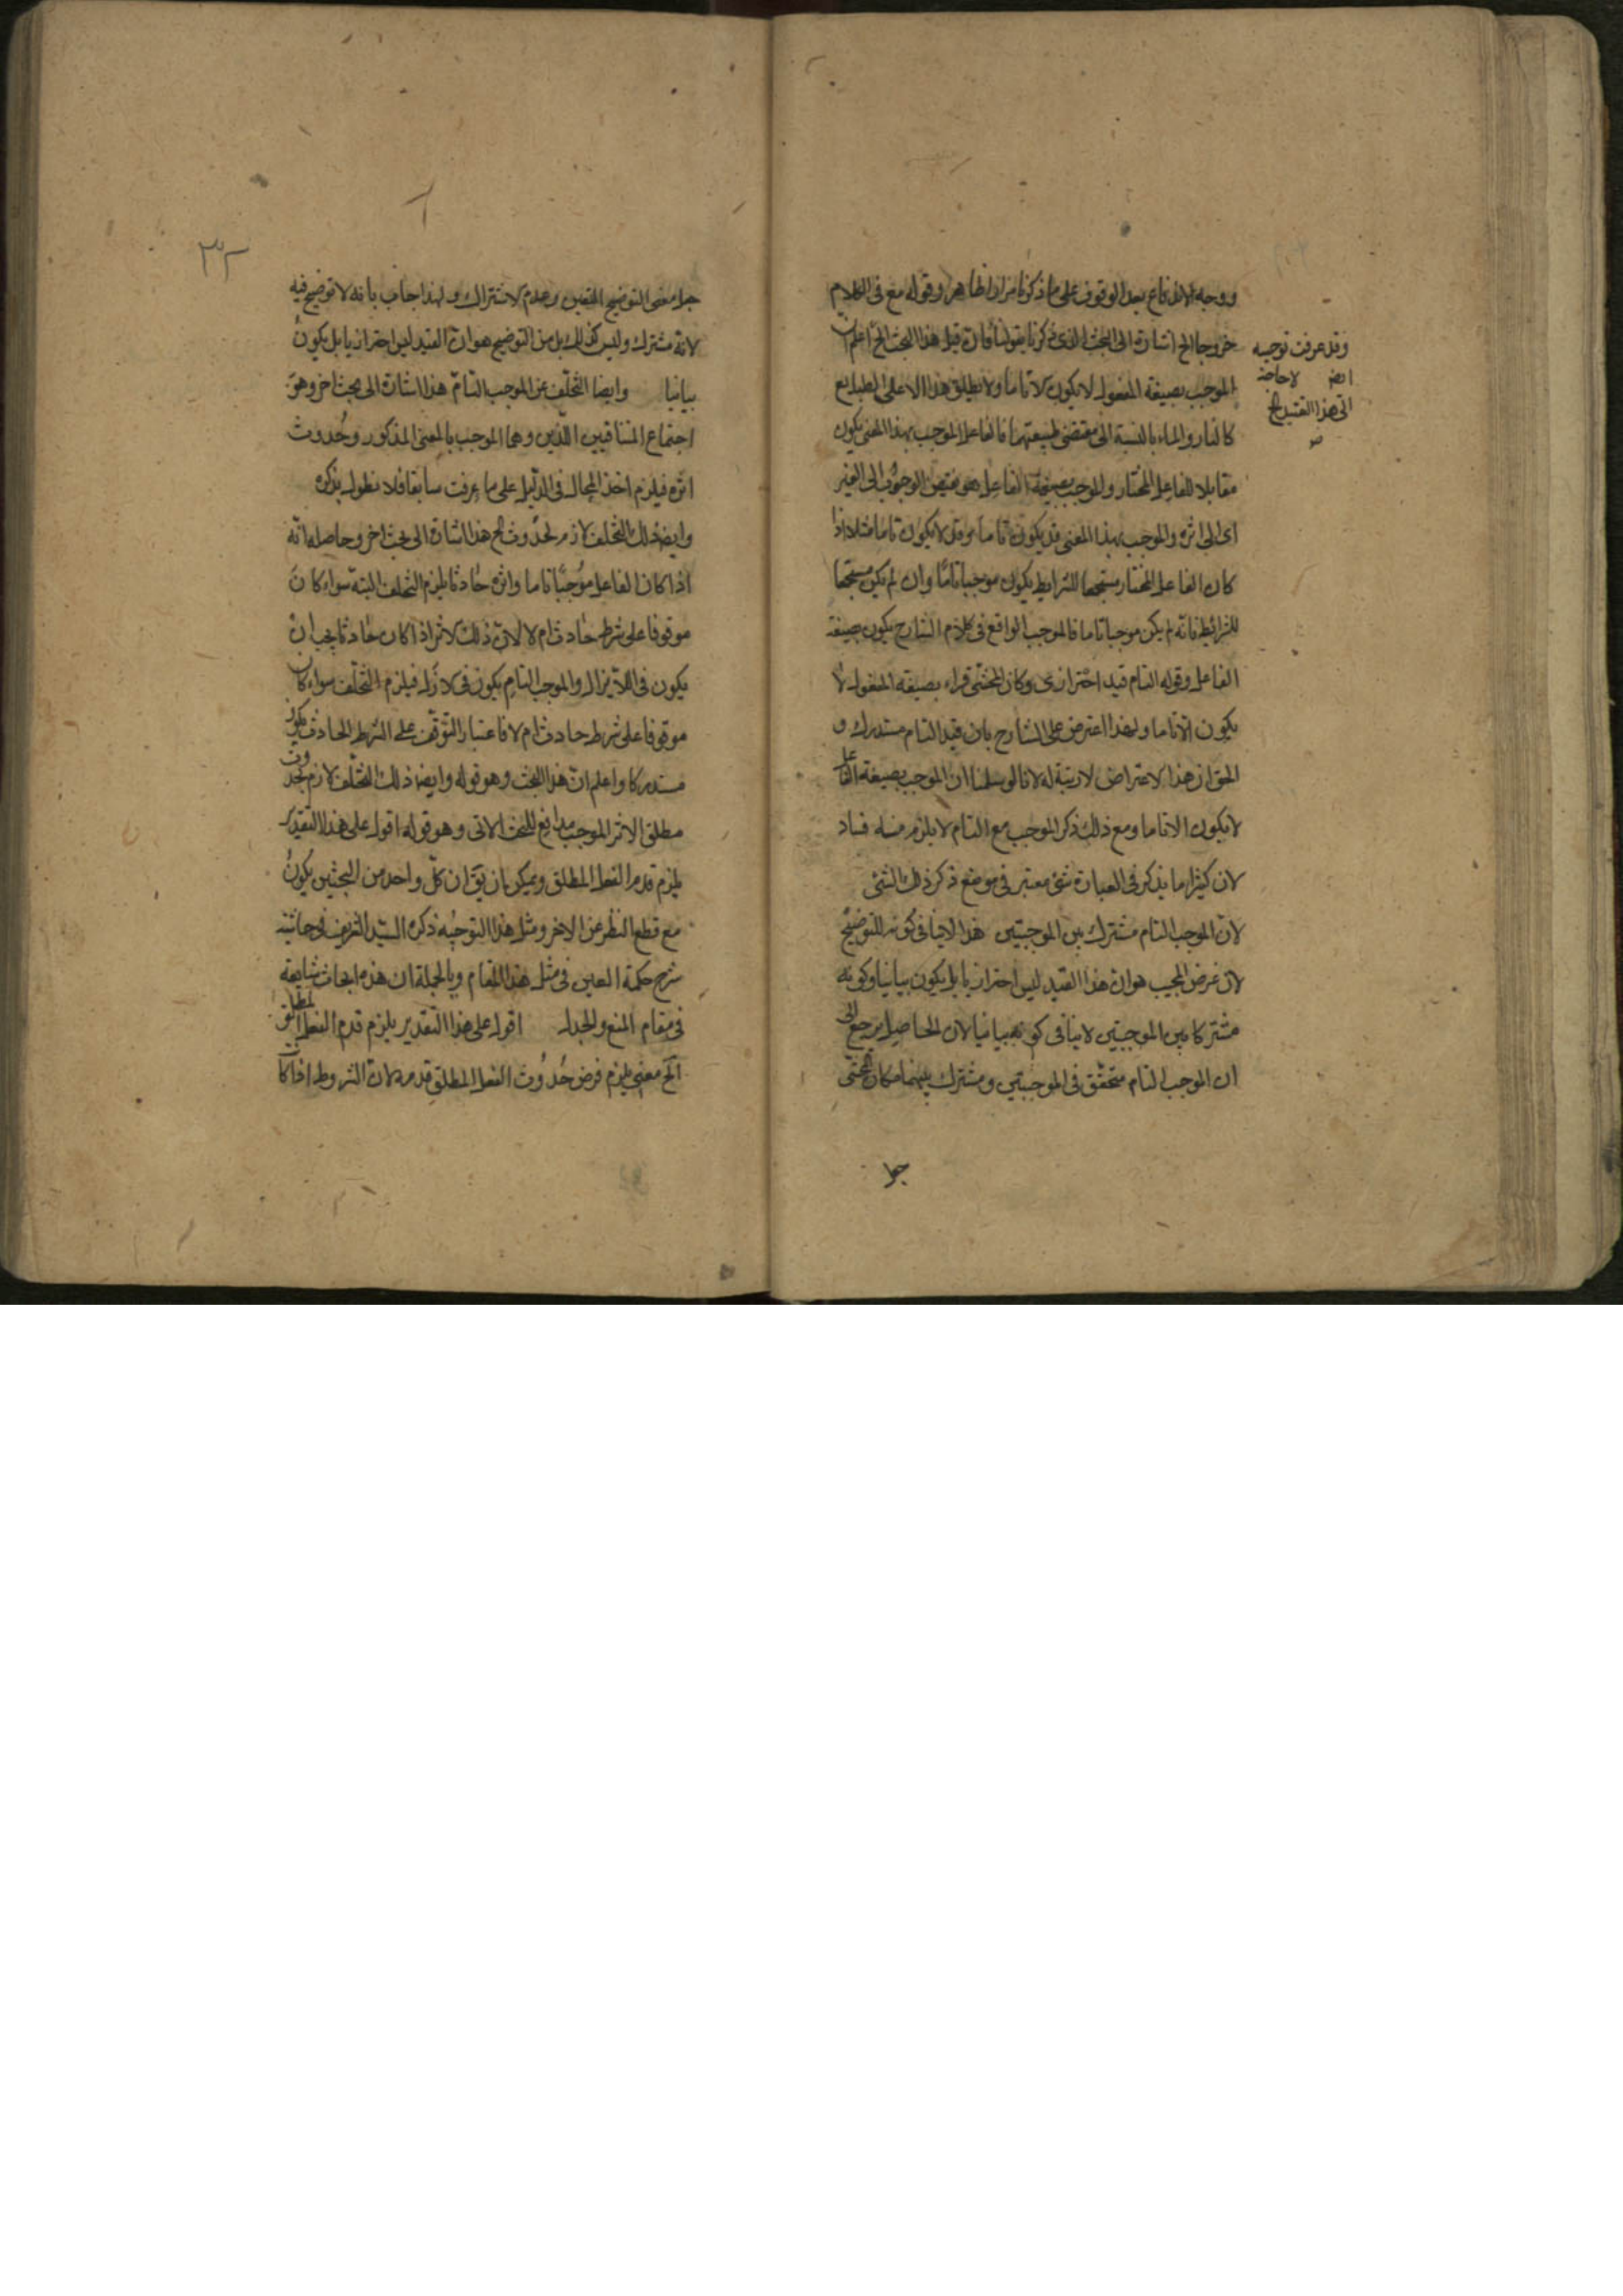 ووجه الاندفاع بعد الوقوف على ما ذكرنا مرارا ظاهر وقوله مع فى الكلام
خروجا الخ اشارة الى البحث الذى ذكرنا بقولنا فان قيل هذا البحث الخ اعلم ان
الموجب بصيغة المفعول لا يكون الا تاما ولا يطلق هذا الا على الطبايع
كالنار والماء بالنسبة الى مقتضى طبيعتهما فالفاعل الموجب بهذا المعنى يكون
مقابلا للفاعل المختار والموجب بصيغة الفاعل هو مفيض الوجوب الى الغير
اى الى اثره والموجب بهذا المعنى قد يكون تاما وقد لا يكون تاما مثلا اذا
كان الفاعل المختار مستجمعا للشرايط يكون موجبا تاما وان لم يكن مستجمعا
للشرائط فانه لم يكن موجبا تاما فالموجب الواقع فى كلام الشارح يكون بصيغة
الفاعل وقوله التام قيد احترازى وكان المحشى قراء بصيغة المفعول لا
يكون الا تاما ولهذا اعترض على الشارح بان قيد التام مستدرك و
الحق ان هذا الاعتراض لا رتبة له لانا لو سلمنا ان الموجب بصيغة الفاعل
لا يكون الا تاما ومع ذلك ذكر الموجب مع التام لا يلزم منه فساد
لان كثيرا ما يذكر فى العبارة شئ معتبر فى موضع ذكر ذلك الشئ
لان الموجب التام مشترك بين الموجبتين هذا لا ينافى كونه للتوضيح
لان غرض المجيب هو ان هذا القيد ليس احترازيا بل يكون بيانيا وكونه
مشتركا بين الموجبتين لا ينافى كونه بيانيا لان الحاصل يرجع الى
ان الموجب التام متحقق فى الموجبتين ومشترك بينهما فكان المحشى
وقد عرفت توجيه
ايضا لا حاجة
الى هذا القيد الخ
صح
جعل
٣٢
جعل معنى التوضيح التعيين وعدم الاشتراك ولهذا اجاب بانه لا توضيح فيه
لانه مشترك وليس كذلك بل من التوضيح هو ان القيد ليس احترازيا بل يكون
بيانيا وايضا التخلف عن الموجب التام هذا اشارة الى بحث اخر وهو
اجتماع المتنافيين اللذين وهما الموجب بالمعنى المذكور وحدوث
اثره فيلزم اخذ المحال فى الدليل على ما عرفت سابقا فلا نطول بذكره
وايضا ذلك التخلف لازم لحدوث الخ هذا اشارة الى بحث اخر وحاصله انه
اذا كان الفاعل موجبا تاما واثره حادثا يلزم التخلف البتة سواء كان
موقوفا على شرط حادث ام لا لان ذلك الاثر اذا كان حادثا يجب ان
يكون فى اللايزال والموجب التام يكون فى الازل فيلزم التخلف سواء كان
موقوفا على شرط حادث ام لا فاعتبار التوقف على الشرط الحادث يكون
مستدركا واعلم ان هذا البحث وهو قوله وايضا ذلك التخلف لازم لحدوث
مطلق الاثر الموجب مدافع للبحث الاتى وهو قوله اقول على هذا التقدير
يلزم قدم الفعل المطلق ويمكن بان يق ان كل واحد من البحثين يكون
مع قطع النظر عن الاخر ومثل هذا التوجيه ذكره السيد الشريف فى حاشية
شرح حكمة العين فى مثل هذا المقام وبالجملة ان هذه ابحاث شايعة
فى مقام المنع والجدل اقول على هذا التقدير يلزم قدم الفعل المطلق
الخ معنى يلزم فرض حدوث الفعل المطلق قدمه لان الشروط اذا كا